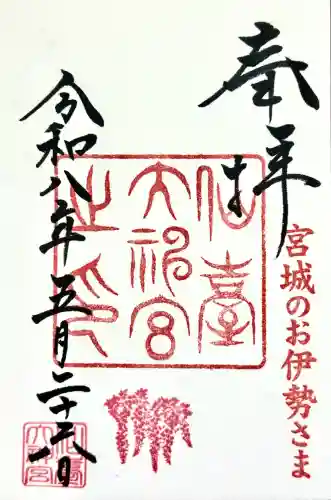 奉拝
宮城のお伊勢さま
仙臺
大神宮
之印
令和八年五月二十六日